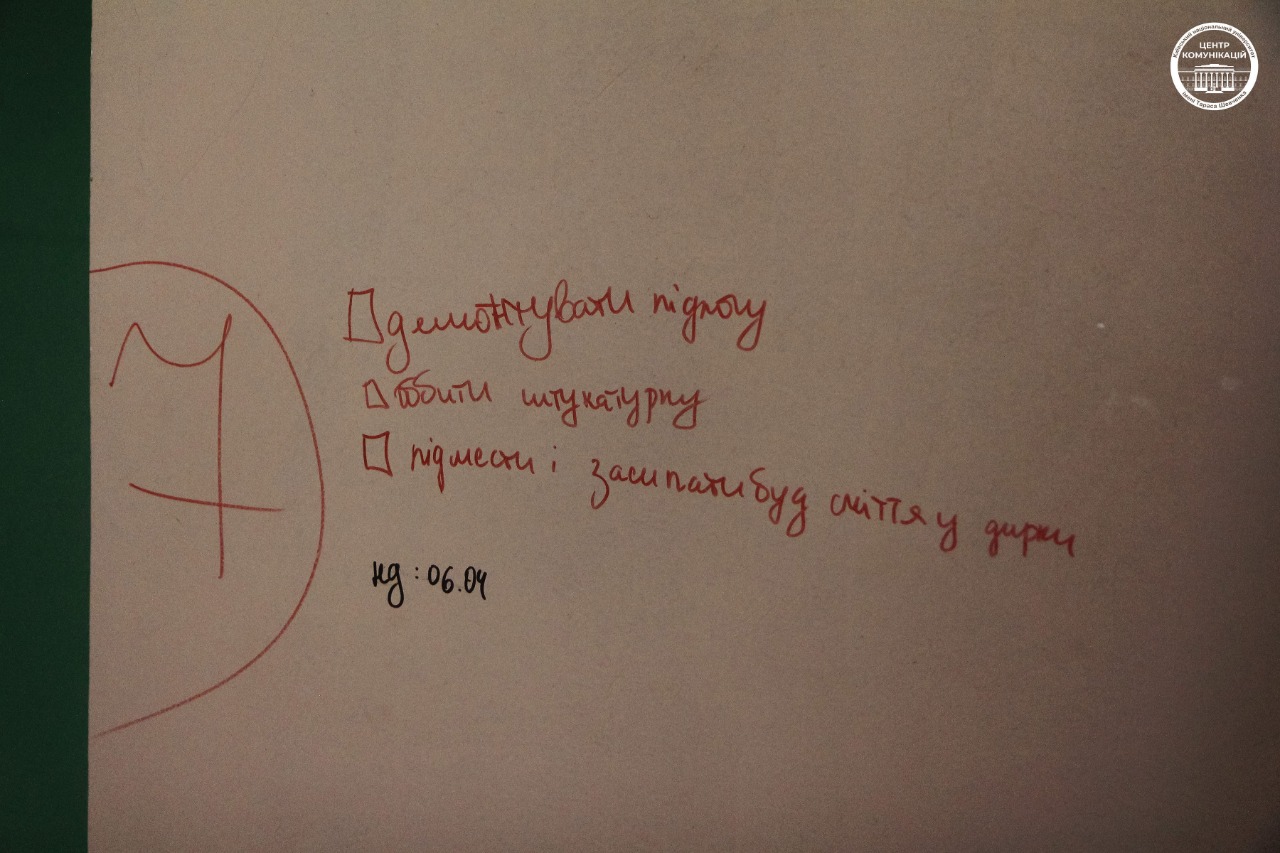 Київський національний університет
ЦЕНТР
КОМУНІКАЦІЙ
імені Тараса Шевченка
7
демонтувати підлогу
оббити штукатурку
підмести і засипати буд сміття у дирки
нд: 06.04